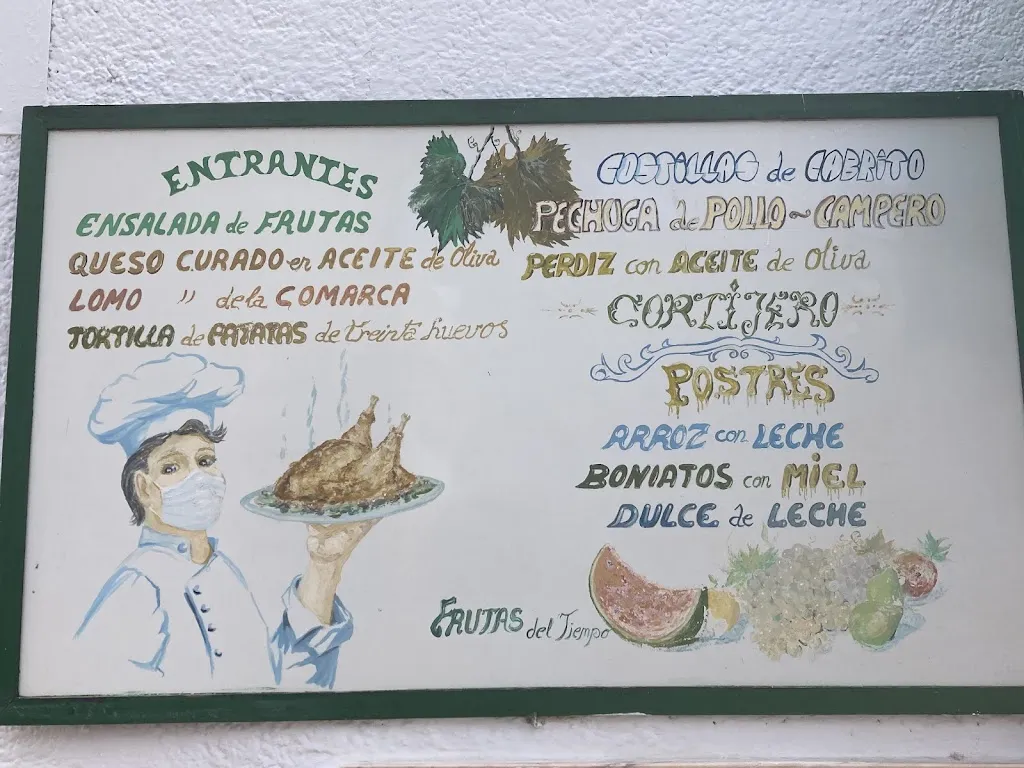 ENTRANTES
ENSALADA de FRUTAS
QUESO CURADO en ACEITE de Oliva
LOMO " de la COMARCA
TORTILLA de PATATAS de treinta huevos
COSTILLAS de CABRITO
PECHUGA de POLLO~CAMPERO
PERDIZ con ACEITE de Oliva
CORTIJERO
POSTRES
ARROZ con LECHE
BONIATOS con MIEL
DULCE de LECHE
FRUTAS del Tiempo